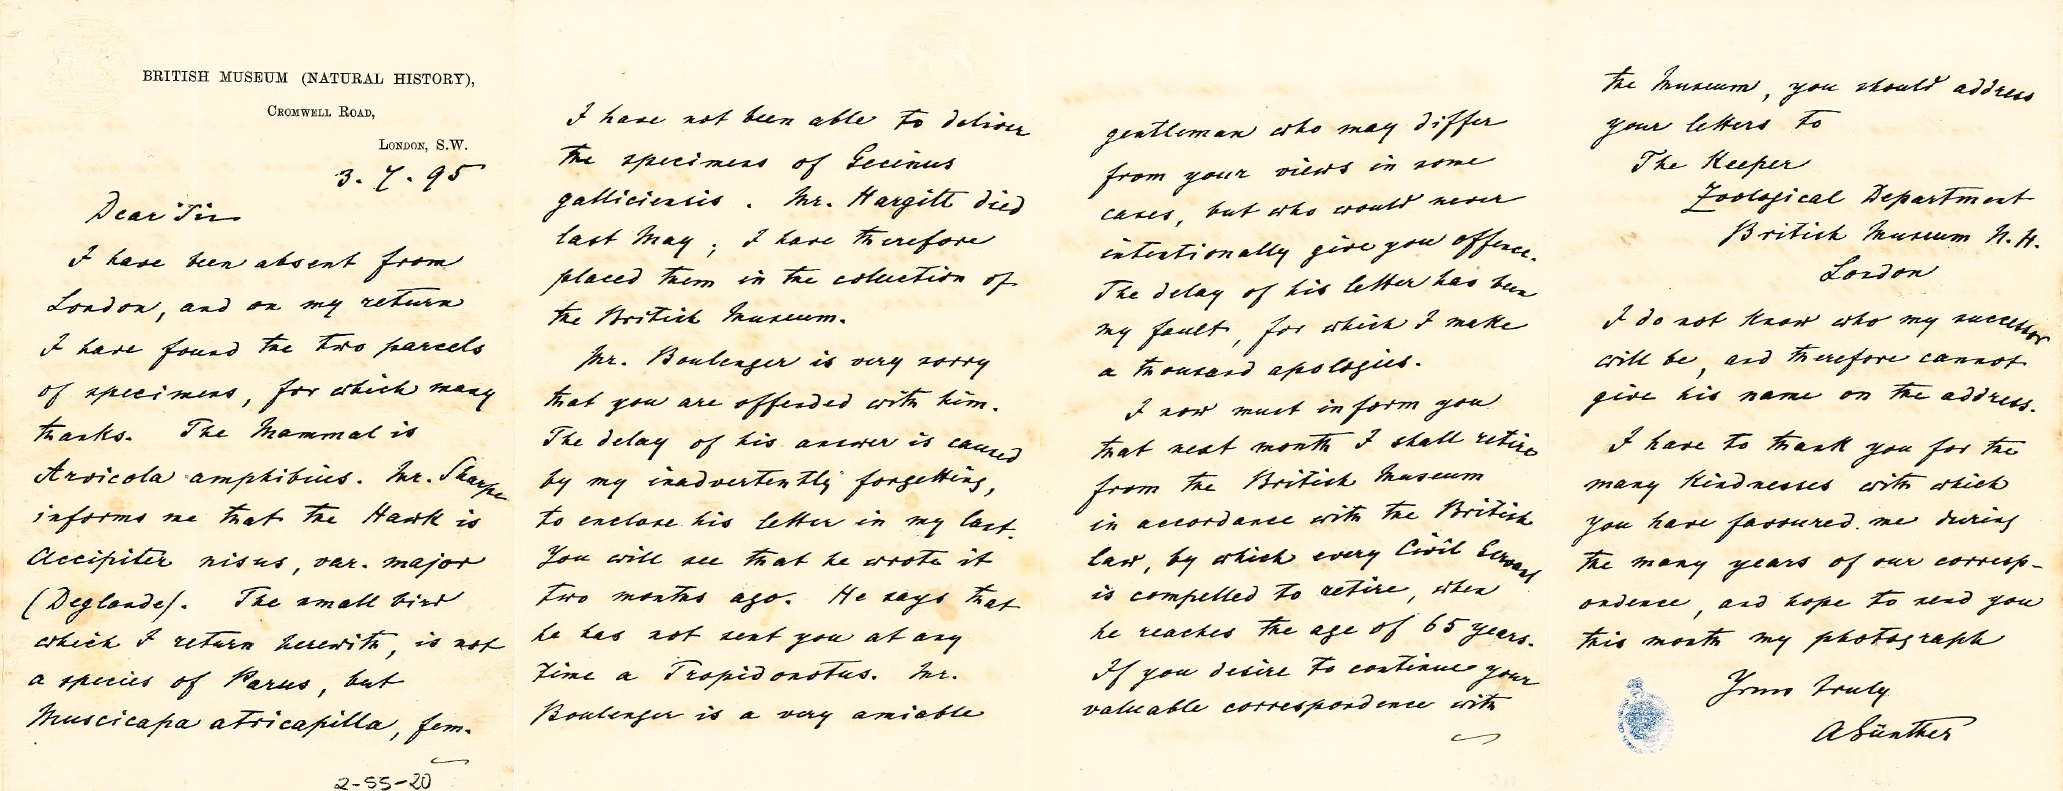 BRITISH MUSEUM (NATURAL HISTORY),
CROMWELL ROAD,
LONDON, S.W.
3. 7. 95
Dear Sir
I have been absent from
London, and on my return
I have found the two parcels
of specimens, for which many
thanks. The Mammal is
Arvicola amphibius. Mr. Sharpe
informs me that the Hawk is
Accipiter nisus, var. major
(Deglande). The small bird
which I return herewith, is not
a species of Parus, but
Muscicapa atricapilla, fem.
2-55-20
I have not been able to deliver
the specimens of Gecinus
galliciensis. Mr. Hargitt died
last May; I have therefore
placed them in the collection of
the British Museum.
Mr. Boulenger is very sorry
that you are offended with him.
The delay of his answer is caused
by my inadvertently forgetting,
to enclose his letter in my last.
You will see that he wrote it
two months ago. He says that
he has not sent you at any
time a Tropidonotus. Mr.
Boulenger is a very amiable
gentleman who may differ
from your views in some
cases, but who would never
intentionally give you offence.
The delay of his letter has been
my fault, for which I make
a thousand apologies.
I now must inform you
that next month I shall retire
from the British Museum
in accordance with the British
law, by which every Civil Servant
is compelled to retire, when
he reaches the age of 65 years.
If you desire to continue your
valuable correspondence with
the Museum, you should address
your letters to
The Keeper
Zoological Department
British Museum N. H.
London
I do not know who my successor
will be, and therefore cannot
give his name on the address.
I have to thank you for the
many kindnesses with which
you have favoured me during
the many years of our corresp-
ondence, and hope to send you
this month my photograph
Yours truly
A Günther